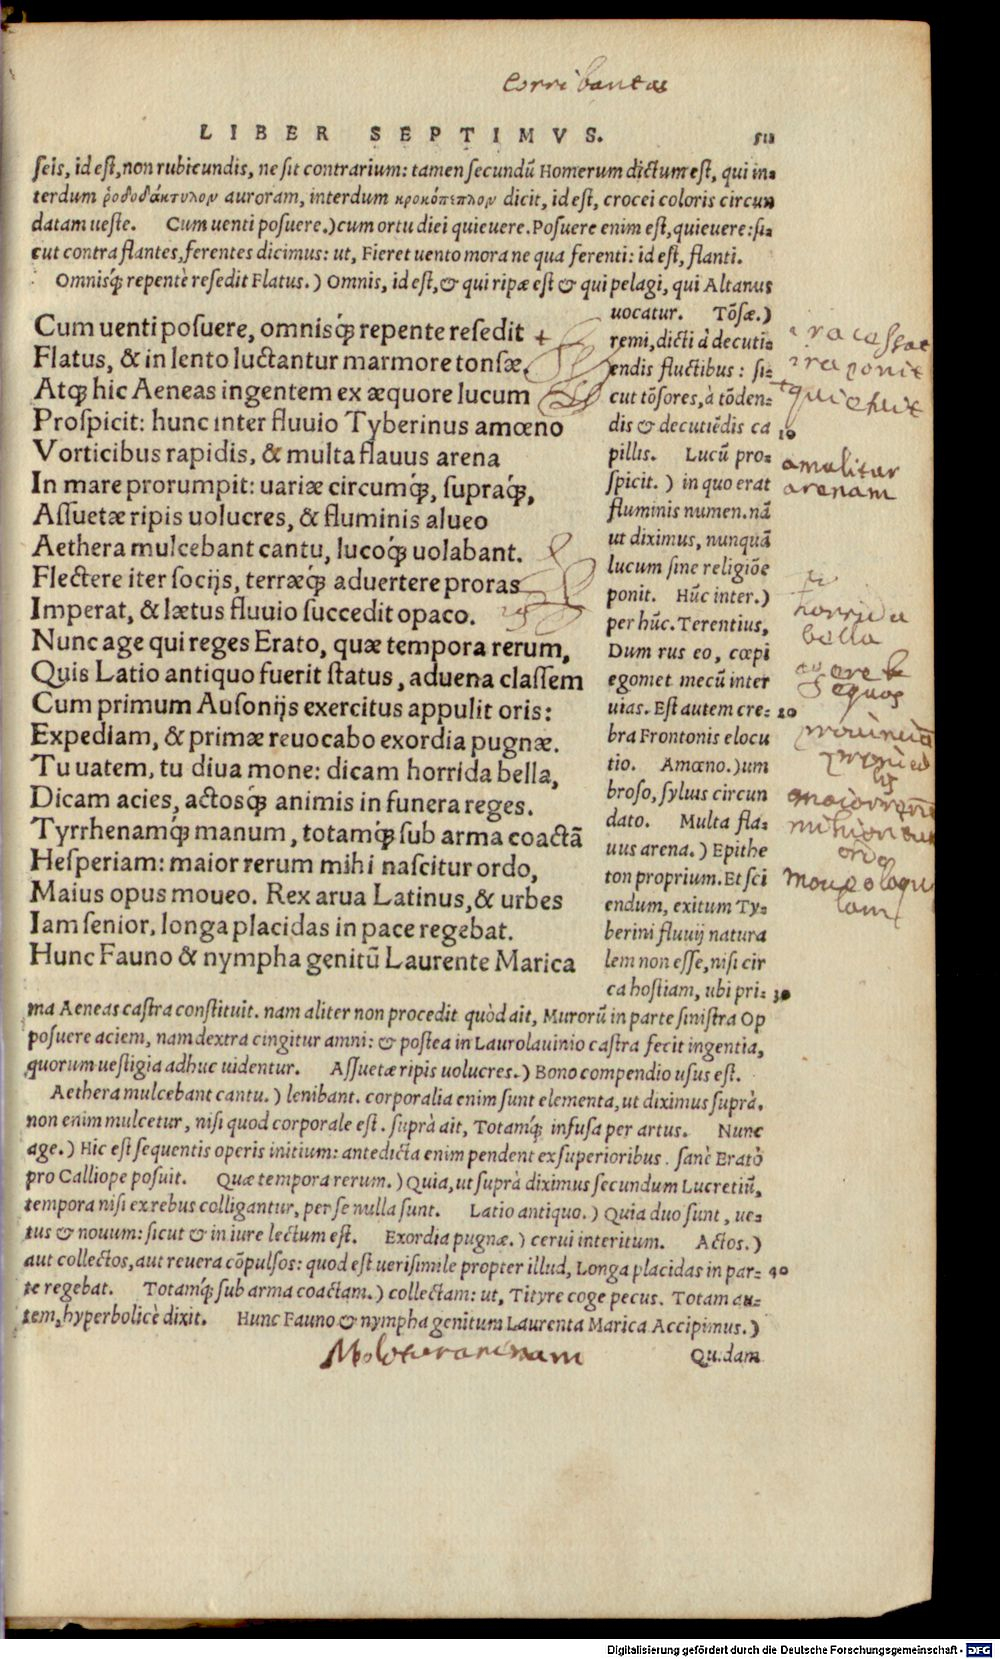 Corribantas
LIBER SEPTIMVS.
seis, id est, non rubicundis, ne sit contrarium: tamen secundũ Homerum dictum est, qui in-
terdum ῥοδοδάκτυλον auroram, interdum κροκόπεπλον dicit, id est, crocei coloris circun
datam ueste. Cum uenti posuere.) cum ortu diei quieuere. Posuere enim est, quieuere: si-
cut contra flantes, ferentes dicimus: ut, Fieret uento mora ne qua ferenti: id est, flanti.
Omnisq́; repentè resedit Flatus.) Omnis, id est, & qui ripæ est & qui pelagi, qui Altanus
Cum uenti posuere, omnisq́; repente resedit
Flatus, & in lento luctantur marmore tonsæ.
Atq; hic Aeneas ingentem ex æquore lucum
Prospicit: hunc inter fluuio Tyberinus amœno
Vorticibus rapidis, & multa flauus arena
In mare prorumpit: uariæ circumq́;, supraq́;,
Assuetæ ripis uolucres, & fluminis alueo
Aethera mulcebant cantu, lucoq́; uolabant.
Flectere iter socijs, terræq́; aduertere proras
Imperat, & lætus fluuio succedit opaco.
Nunc age qui reges Erato, quæ tempora rerum,
Quis Latio antiquo fuerit status, aduena classem
Cum primum Ausonijs exercitus appulit oris:
Expediam, & primæ reuocabo exordia pugnæ.
Tu uatem, tu diua mone: dicam horrida bella,
Dicam acies, actosq́; animis in funera reges.
Tyrrhenamq́; manum, totamq́; sub arma coactã
Hesperiam: maior rerum mihi nascitur ordo,
Maius opus moueo. Rex arua Latinus, & urbes
Iam senior, longa placidas in pace regebat.
Hunc Fauno & nympha genitũ Laurente Marica
uocatur. Tõsæ.)
remi, dicti à decuti-
endis fluctibus: si-
cut tõsores, à tõden-
dis & decutiẽdis ca 10
pillis. Lucũ pro-
spicit.) in quo erat
fluminis numen. nã
ut diximus, nunquã
lucum sine religiõe
ponit. Hũc inter.)
per hũc. Terentius,
Dum rus eo, cœpi
egomet mecũ inter
uias. Est autem cre- 20
bra Frontonis elocu
tio. Amœno.) um
broso, syluis circun
dato. Multa fla-
uus arena.) Epithe
ton proprium. Et sci
endum, exitum Ty-
berini fluuij natura
lem non esse, nisi cir
ca hostiam, ubi pri- 30
ira cessat
ira ponit
quieuit
amulitur
arenam
horrida
bella
maior
mihi
ordo
moueo
ma Aeneas castra constituit. nam aliter non procedit quòd ait, Murorũ in parte sinistra Op
posuere aciem, nam dextra cingitur amni: & postea in Laurolauinio castra fecit ingentia,
quorum uestigia adhuc uidentur. Assuetæ ripis uolucres.) Bono compendio usus est.
Aethera mulcebant cantu.) lenibant. corporalia enim sunt elementa, ut diximus suprà.
non enim mulcetur, nisi quod corporale est. suprà ait, Totamq́; infusa per artus. Nunc
age.) Hic est sequentis operis initium: antedicta enim pendent ex superioribus. sanè Eratò
pro Calliope posuit. Quæ tempora rerum.) Quia, ut suprà diximus secundum Lucretiũ,
tempora nisi ex rebus colligantur, per se nulla sunt. Latio antiquo.) Quia duo sunt, ue-
tus & nouum: sicut & in iure lectum est. Exordia pugnæ.) cerui interitum. Actos.)
aut collectos, aut reuera cõpulsos: quod est uerisimile propter illud, Longa placidas in par- 40
te regebat. Totamq́; sub arma coactam.) collectam: ut, Tityre coge pecus. Totam au-
tem, hyperbolicè dixit. Hunc Fauno & nympha genitum Laurenta Marica Accipimus.)
Quidam